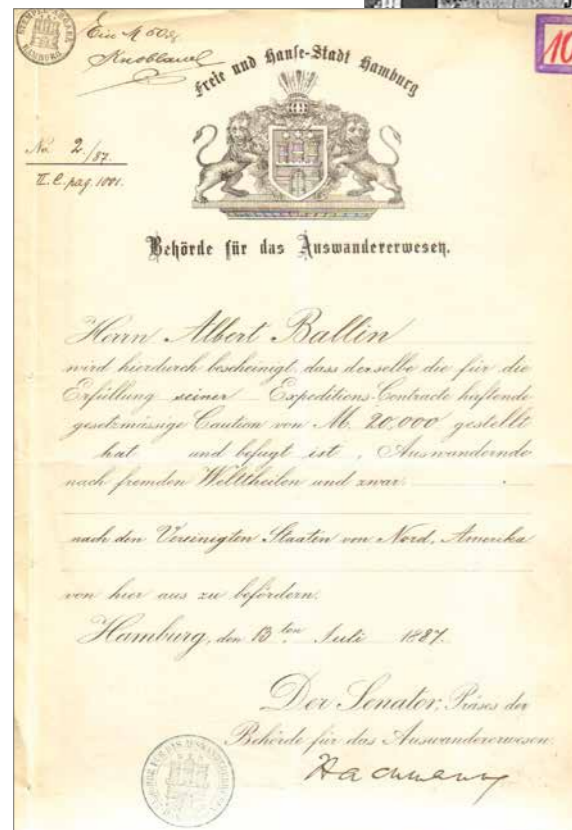 STEMPEL-ABGABE
HAMBURG
Ein M 50
10
Freie und Hanse-Stadt Hamburg
No 2./87.
II. C. pag. 1001.
Behörde für das Auswandererwesen.
Herrn Albert Ballin
wird hierdurch bescheinigt, dass derselbe die für die
Erfüllung seiner Expeditions-Contracte haftende
gesetzmässige Caution von M. 20,000 gestellt
hat und befugt ist, Auswandernde
nach fremden Welttheilen und zwar:
nach den Vereinigten Staaten von Nord, Amerika
von hier aus zu befördern.
Hamburg, den 13ten Juli 1887.
Der Senator, Präses der
Behörde für das Auswandererwesen.
Hachmann